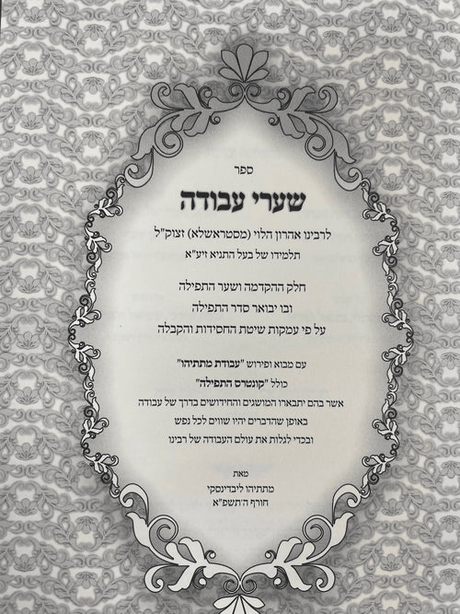 ספר
שערי עבודה
לרבינו אהרון הלוי (מסטראשלא) זצוק"ל
תלמידו של בעל התניא זיע"א
חלק ההקדמה ושער התפילה
ובו יבואר סדר התפילה
על פי עמקות שיטת החסידות והקבלה
עם מבוא ופירוש "עבודת מתתיהו"
כולל "קונטרס התפילה"
אשר בהם יתבארו המושגים והחידושים בדרך של עבודה
באופן שהדברים יהיו שווים לכל נפש
ובכדי לגלות את עולם העבודה של רבינו
מאת
מתתיהו ליבדינסקי
חורף ה'תשפ"א